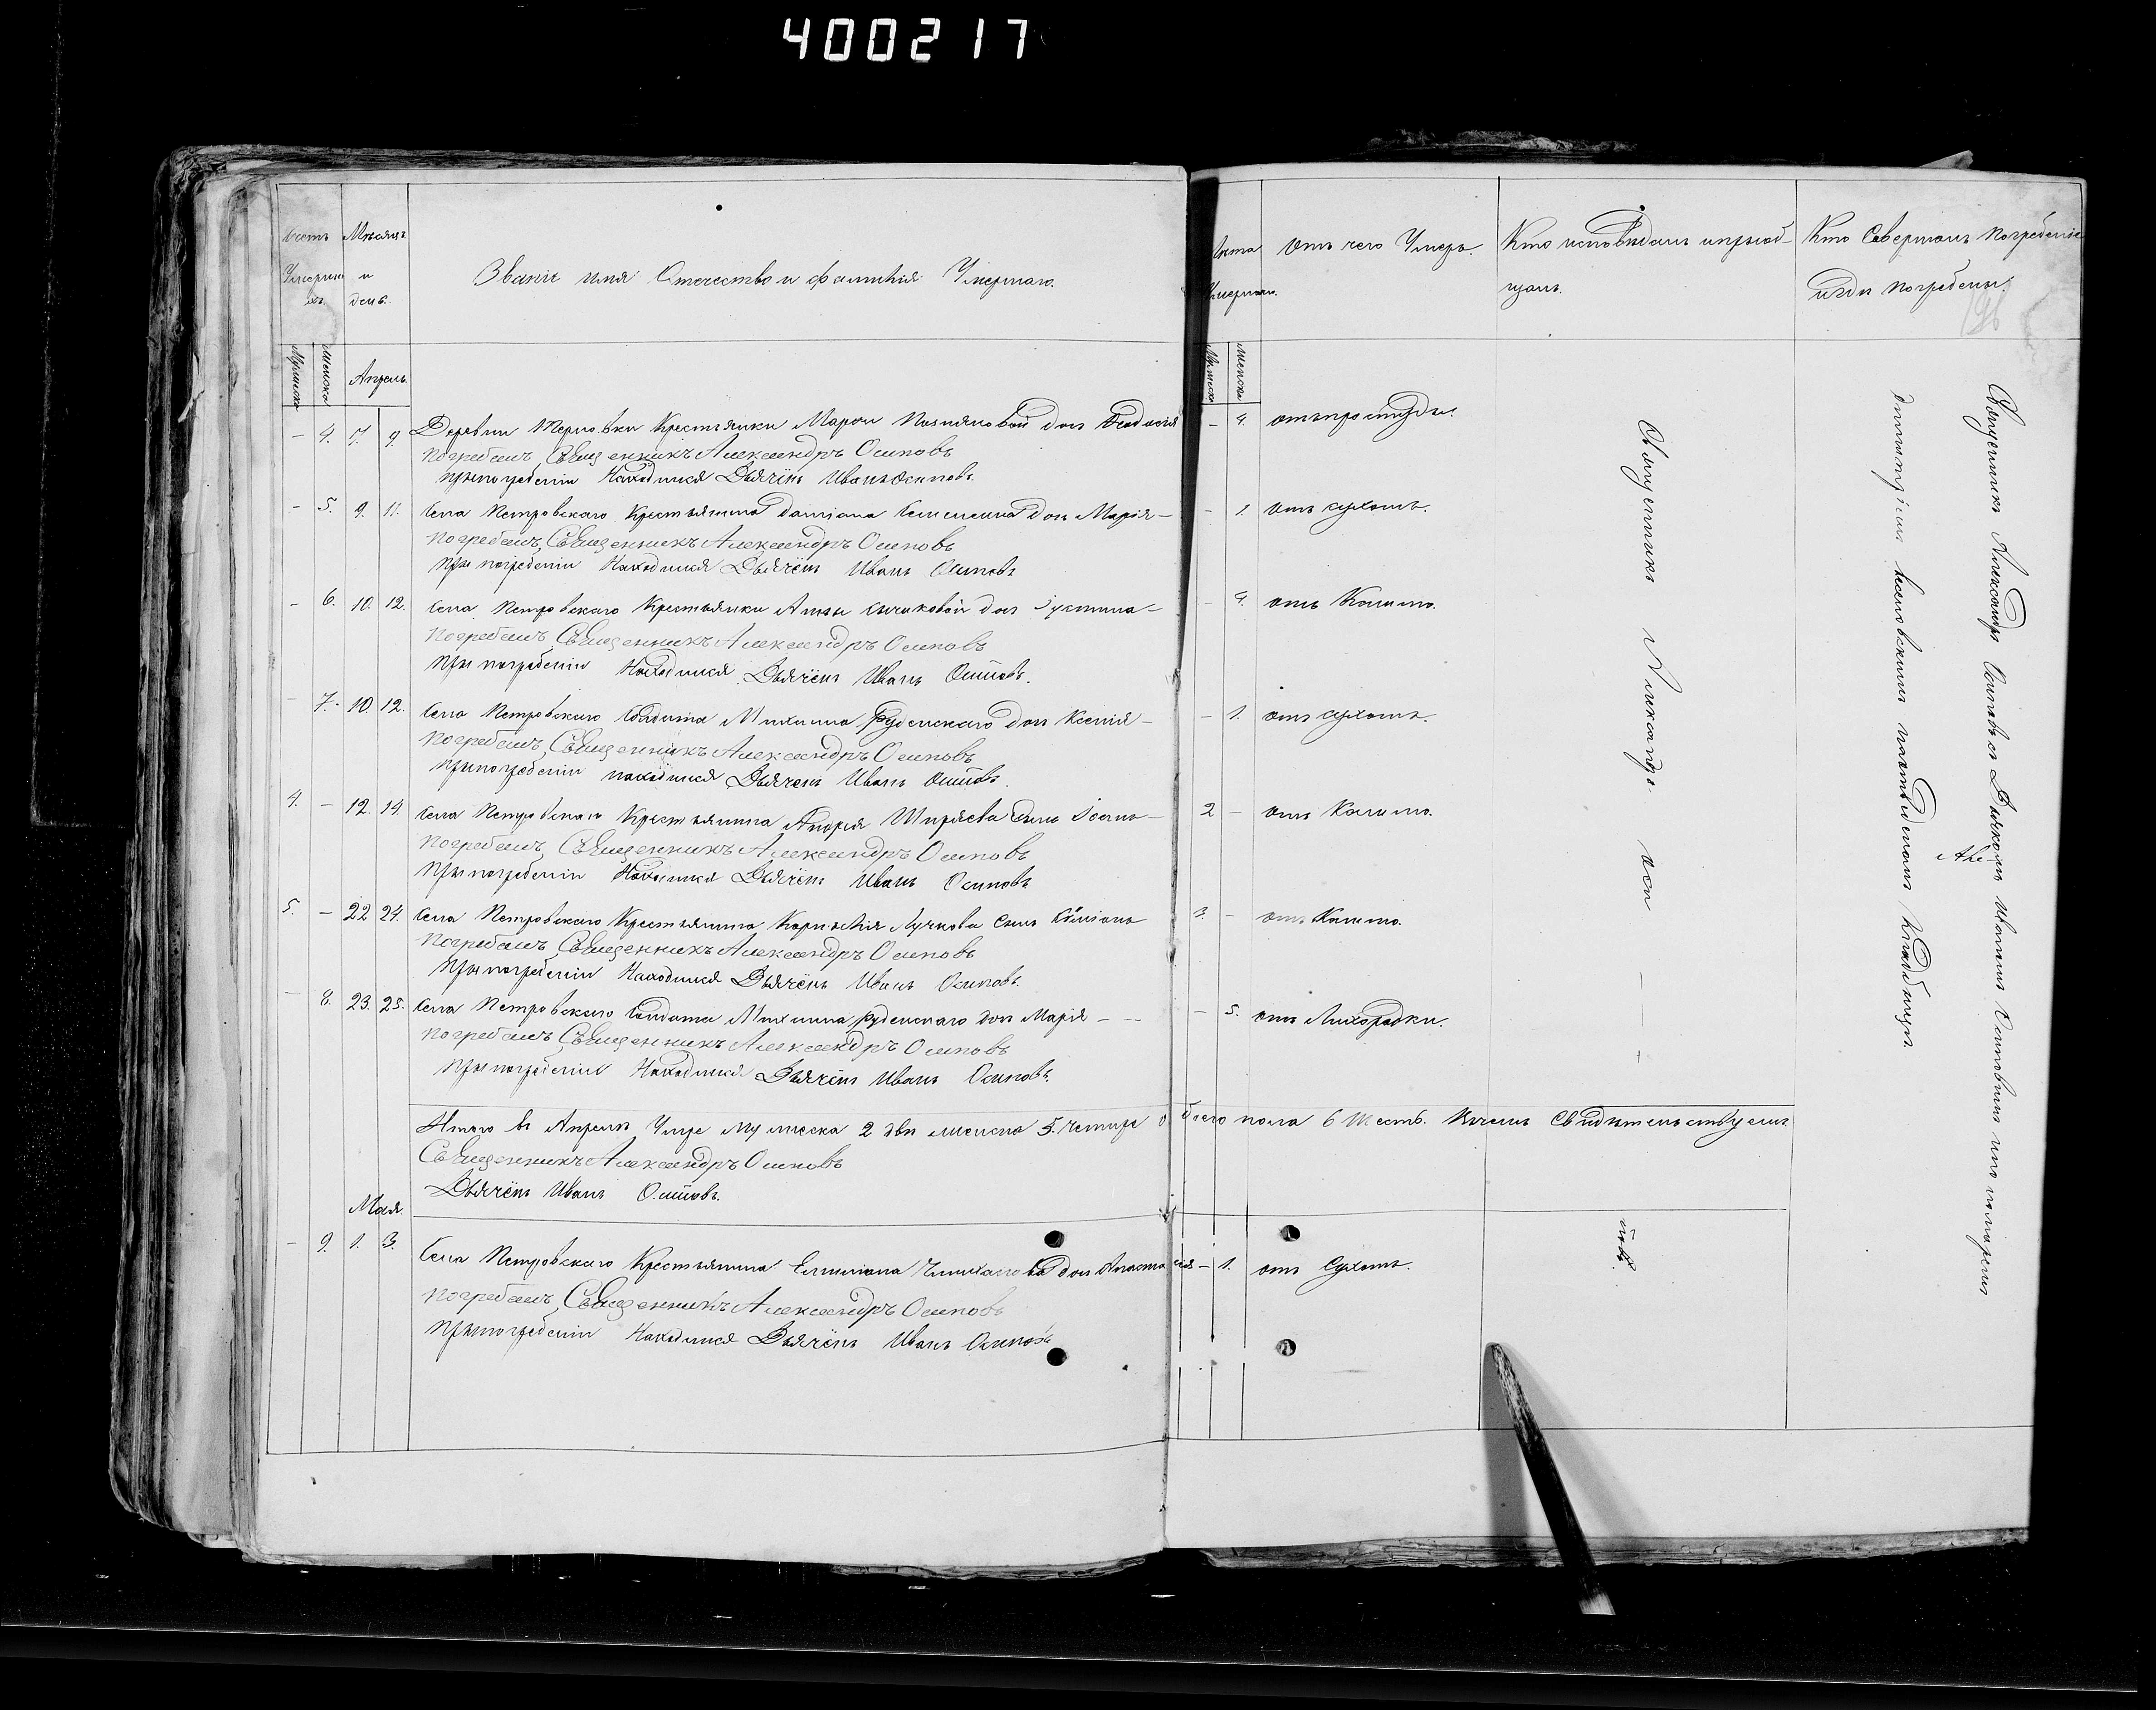 400217
Счетъ Умершихъ
Мѣсяцъ и день.
Званіе имя Отечество и фамилія Умершаго.
Лѣта Умершаго.
Отъ чего Умеръ.
Кто исповѣдалъ и пріобщалъ.
Кто Совершалъ Погребеніе и гдѣ погребены.
Мужеска
Женска
Апрель.
Мужеска
Женска
– 4. 7. 9. Деревни Терновки Крестьянки Марѳи дочь Ѳеодосія – 4. отъ простуды.
Погребалъ Священникъ Александръ Осиповъ
При погребеніи Находился Дьячёкъ Иванъ Осиповъ.
– 5. 9. 11. Села Петровскаго Крестьянина Даміана дочь Марія – – 1. отъ сухотъ.
Погребалъ Священникъ Александръ Осиповъ
При погребеніи Находился Дьячёкъ Иванъ Осиповъ
– 6. 10. 12. Села Петровскаго Крестьянки Анны дочь Іустина – – 4. отъ Кашлю.
Погребалъ Священникъ Александръ Осиповъ
При погребеніи Находился Дьячёкъ Иванъ Осиповъ.
– 7. 10. 12. Села Петровскаго Солдата Михаила Руденскаго дочь Ксенія – – 1. отъ сухотъ.
Погребалъ Священникъ Александръ Осиповъ
При погребеніи находился Дьячекъ Иванъ Осиповъ.
4. – 12. 14. Села Петровскаго Крестьянина Андрея Ширяева сынъ – 2 – отъ Кашлю.
Погребалъ Священникъ Александръ Осиповъ
При погребеніи Находился Дьячёкъ Иванъ Осиповъ
5. – 22 24. Села Петровскаго Крестьянина Корнилія Лучкова сынъ 3. – отъ Кашлю.
Погребалъ Священникъ Александръ Осиповъ
При погребеніи Находился Дьячёкъ Иванъ Осиповъ.
– 8. 23. 25. Села Петровскаго Солдата Михаила Руденскаго дочь Марія – – – 5. отъ Лихорадки.
Погребалъ Священникъ Александръ Осиповъ
При погребеніи Находился Дьячёкъ Иванъ Осиповъ.
Итого въ Апрелѣ Умре мужеска 2 два женска 5. четыре обоего пола 6 Шесть. Въ чемъ Свидѣтельствуемъ
Священникъ Александръ Осиповъ
Дьячёкъ Иванъ Осиповъ.
Мая.
– 9. 1. 3. Села Петровскаго Крестьянина Емиліана дочь Анастасія – 1. отъ Сухотъ.
Погребалъ Священникъ Александръ Осиповъ
При погребеніи Находился Дьячёкъ Иванъ Осиповъ
Священникъ Александръ Оси – – повъ.
Священникъ Александръ Осиповъ съ Дьячкомъ Иваномъ Осиповымъ
на отведенномъ кладбищѣ